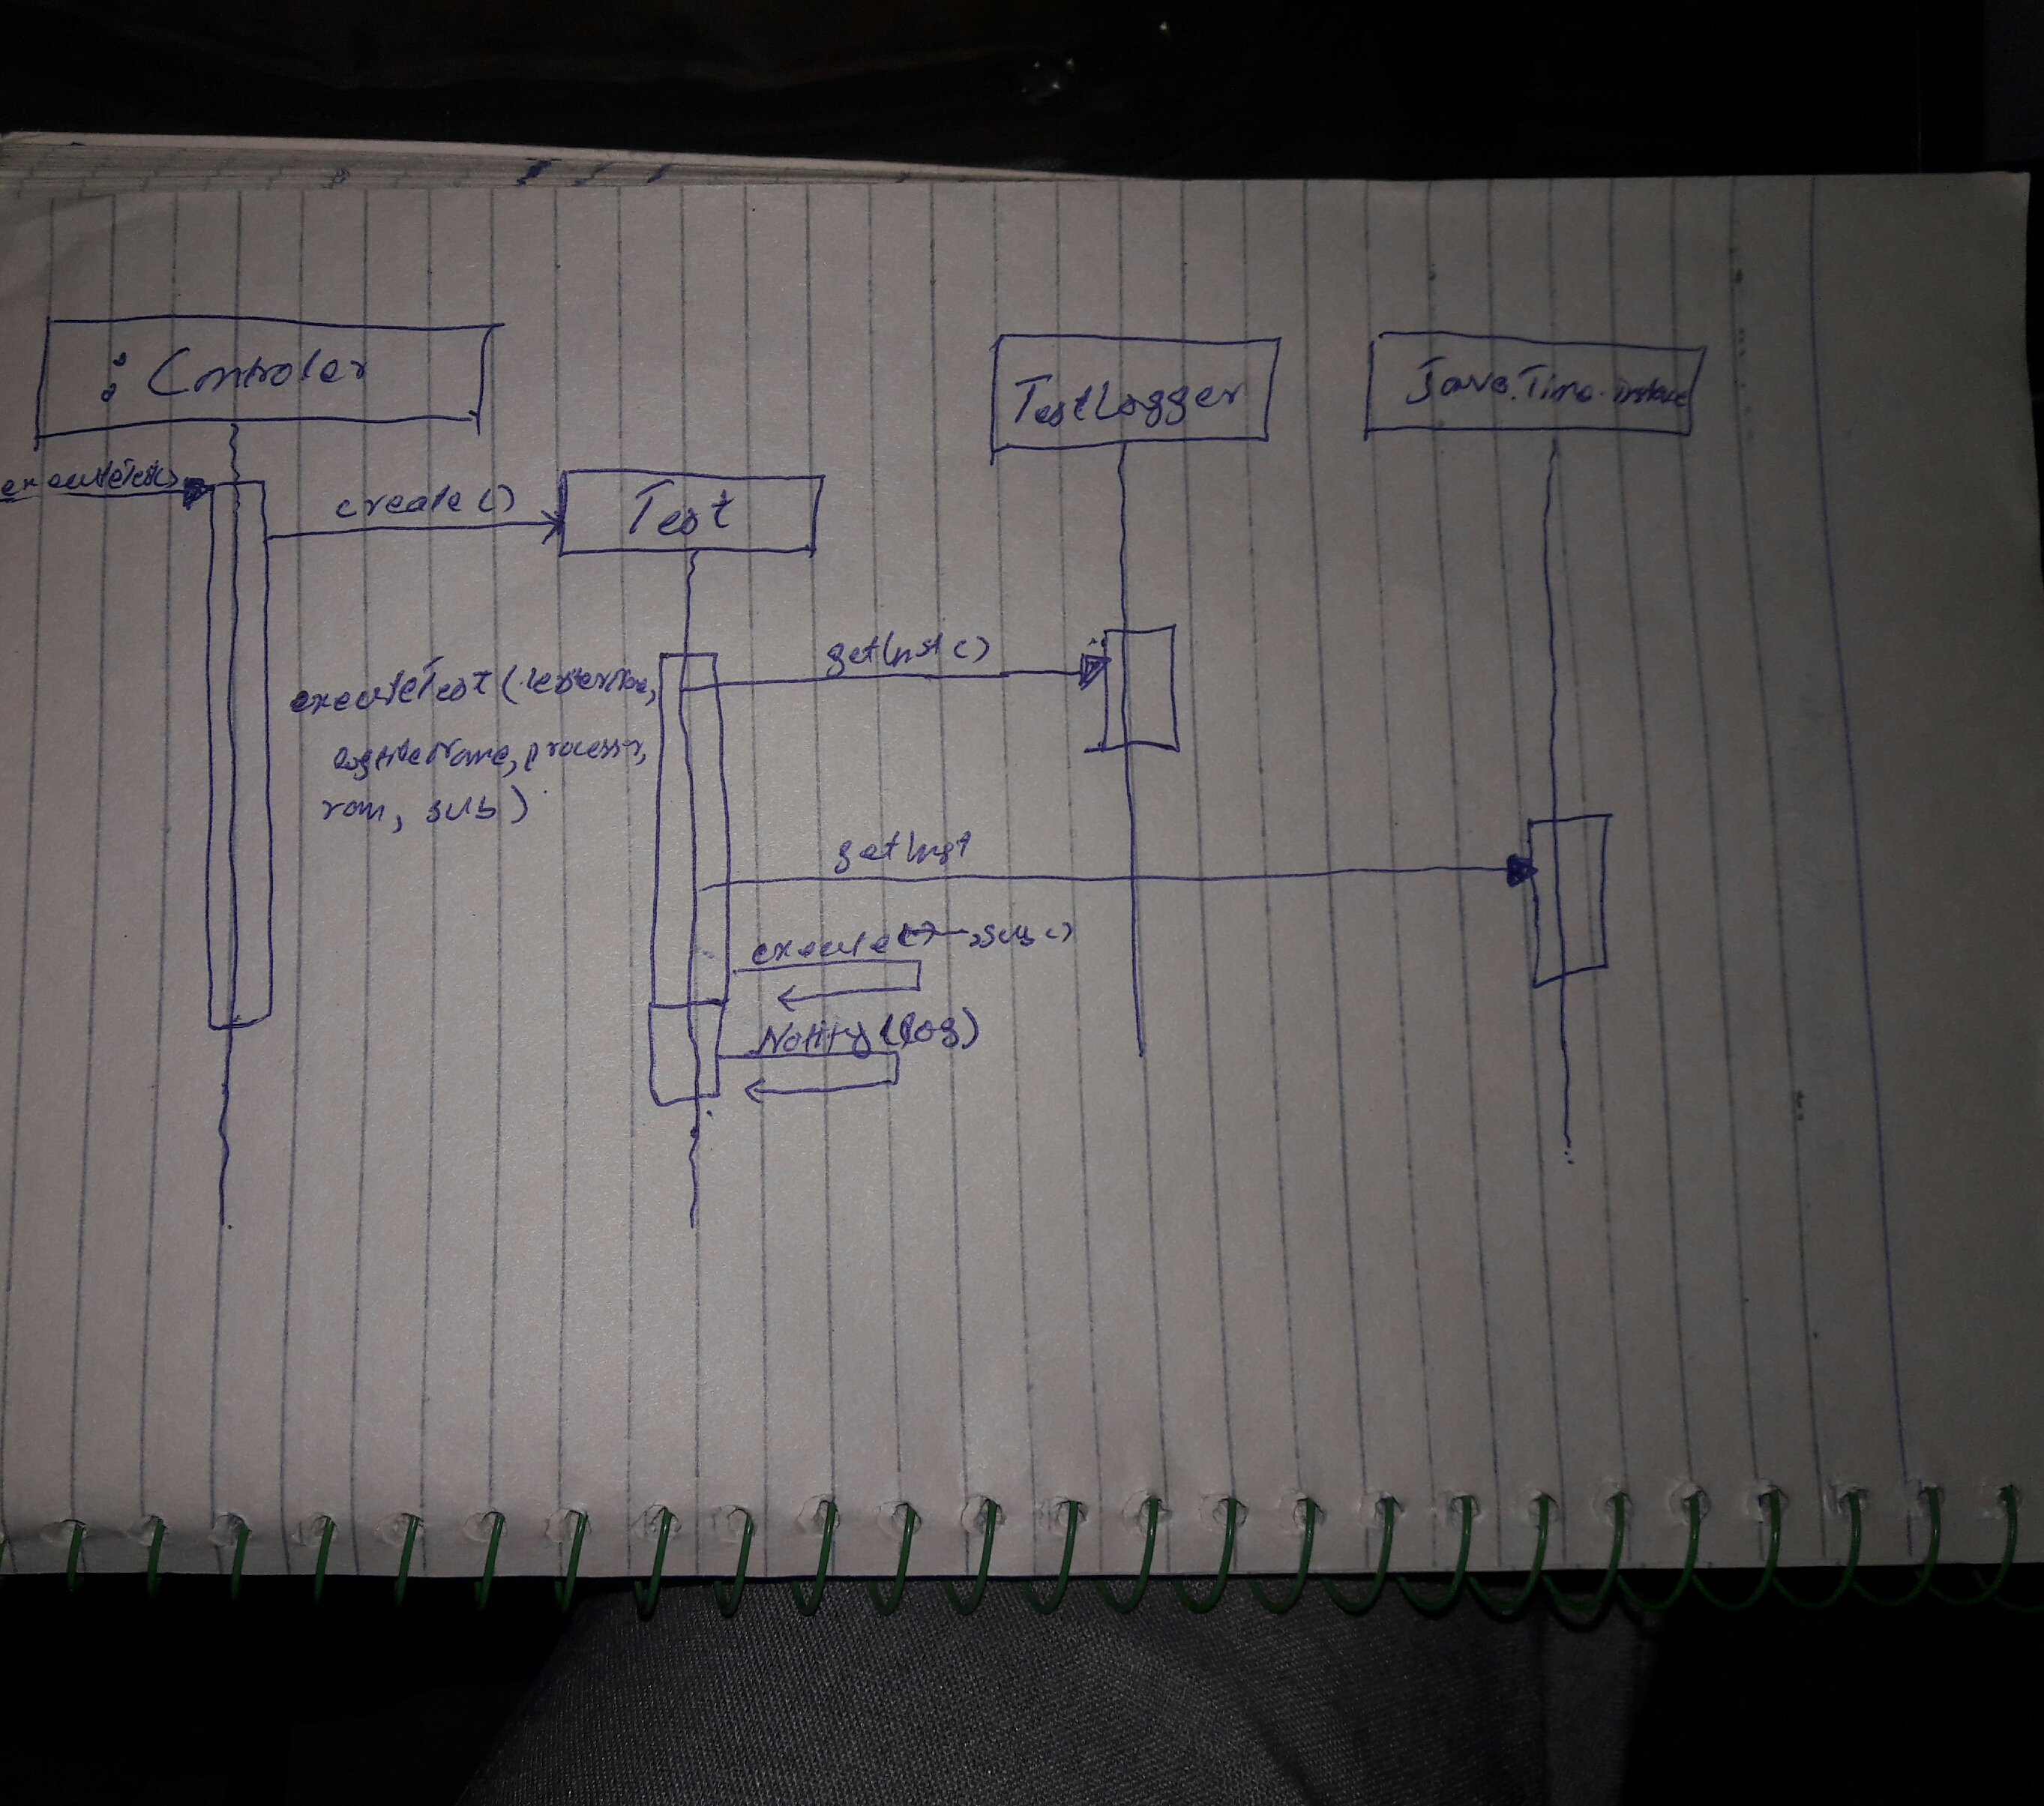 : Controler
TestLogger
Java.Time.instace
executeTest()
create()
Test
getInst()
executeTest(
logfileName, processor,
rom, sub)
getInst
execute() sub()
Notify(log)